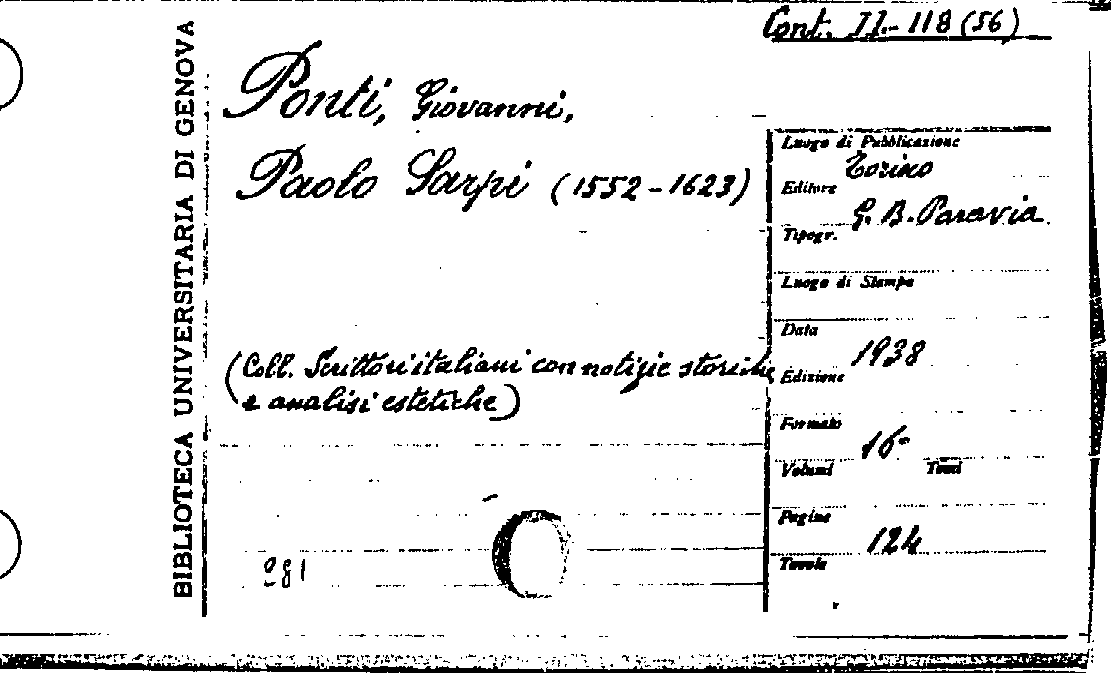 Cont. II.-118 (56)
BIBLIOTECA UNIVERSITARIA DI GENOVA
Ponti, Giovanni,
Paolo Sarpi (1552-1623)
(Coll. Scrittori italiani con notizie storiche
e analisi estetiche)
281
Luogo di Pubblicazione
Torino
Editore
G. B. Paravia
Tipogr.
Luogo di Stampa
Data
1938
Edizione
Formato
16°
Volumi Tomi
Pagine
124
Tavole